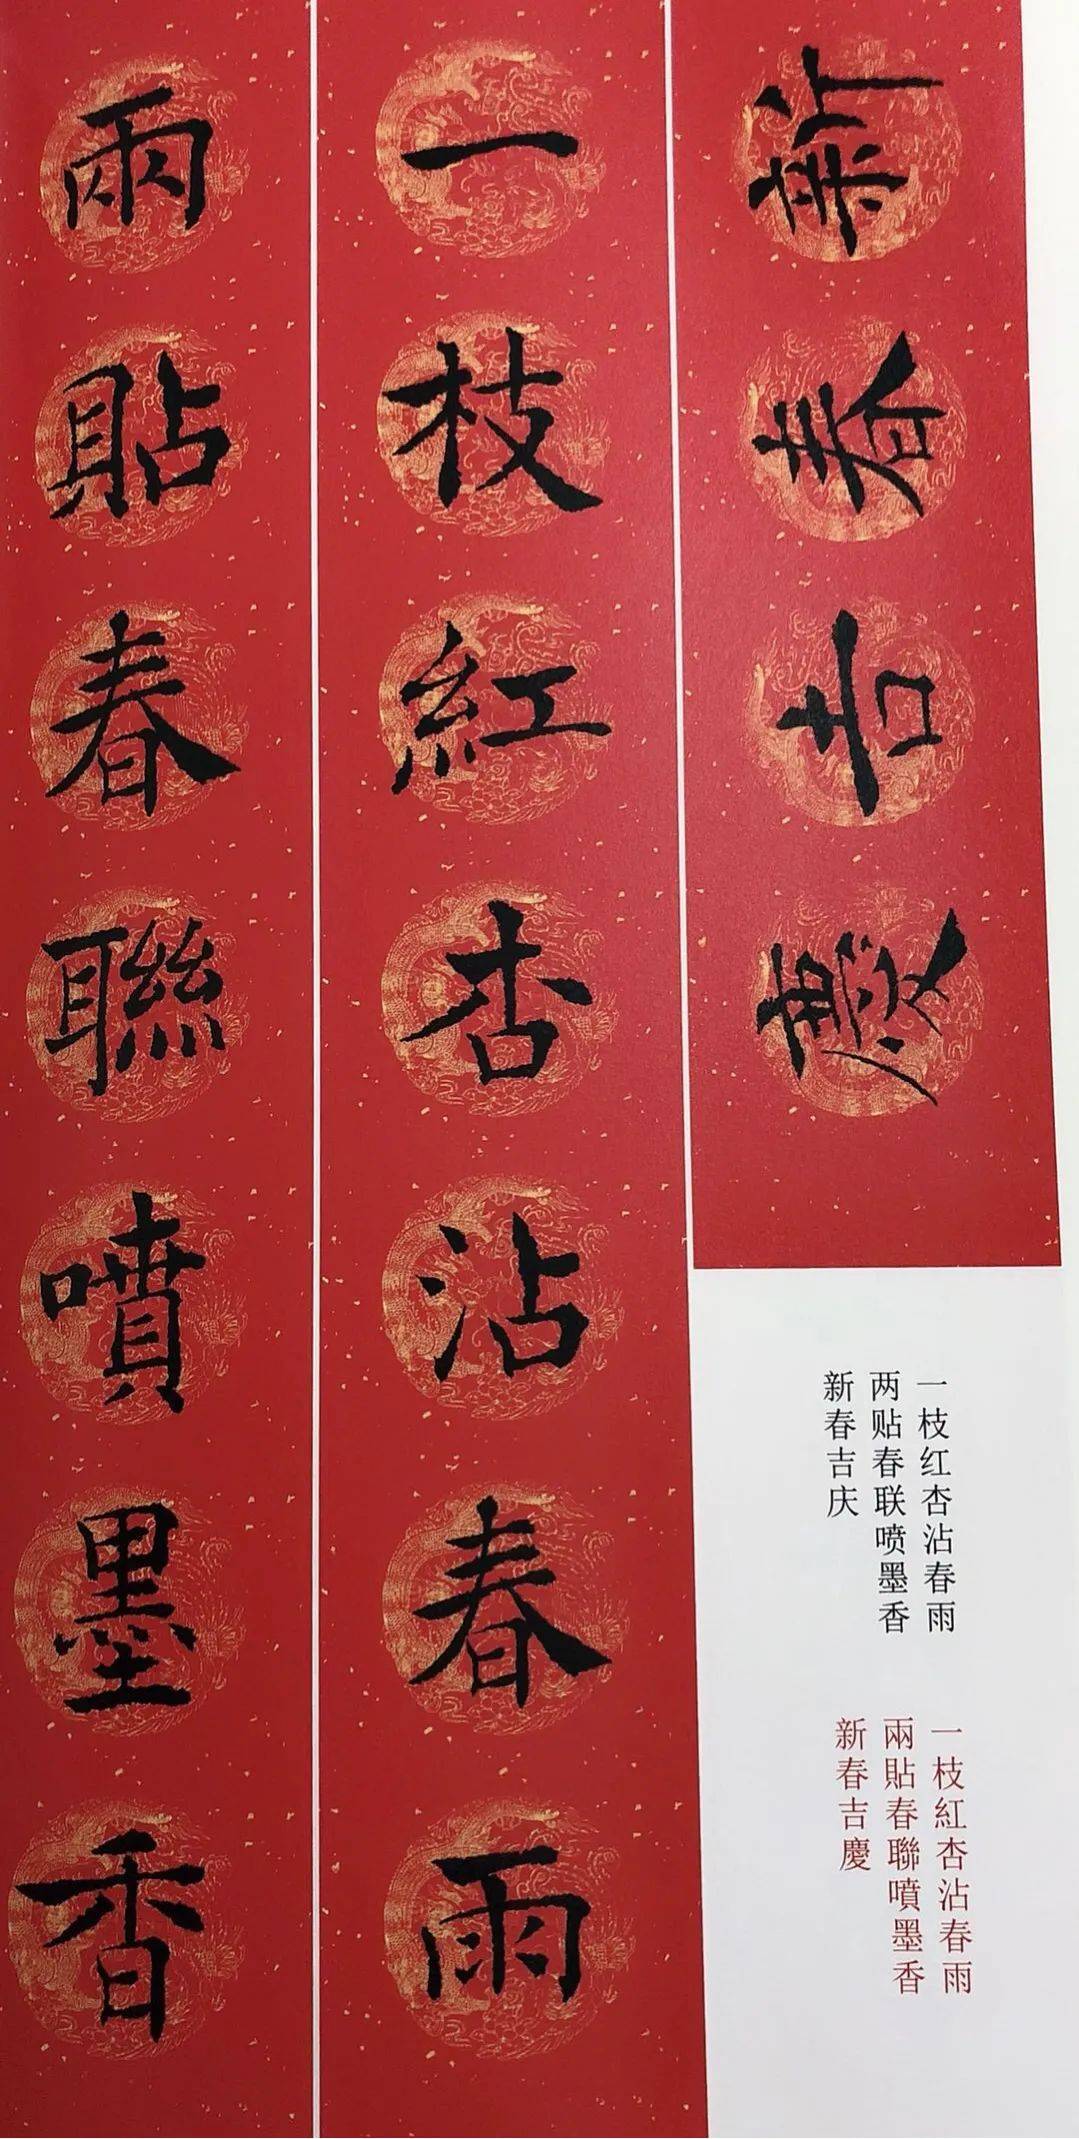 新春吉慶
一枝紅杏沾春雨
兩貼春聯噴墨香
一枝红杏沾春雨
两贴春联喷墨香
新春吉庆
一枝紅杏沾春雨
兩貼春聯噴墨香
新春吉慶